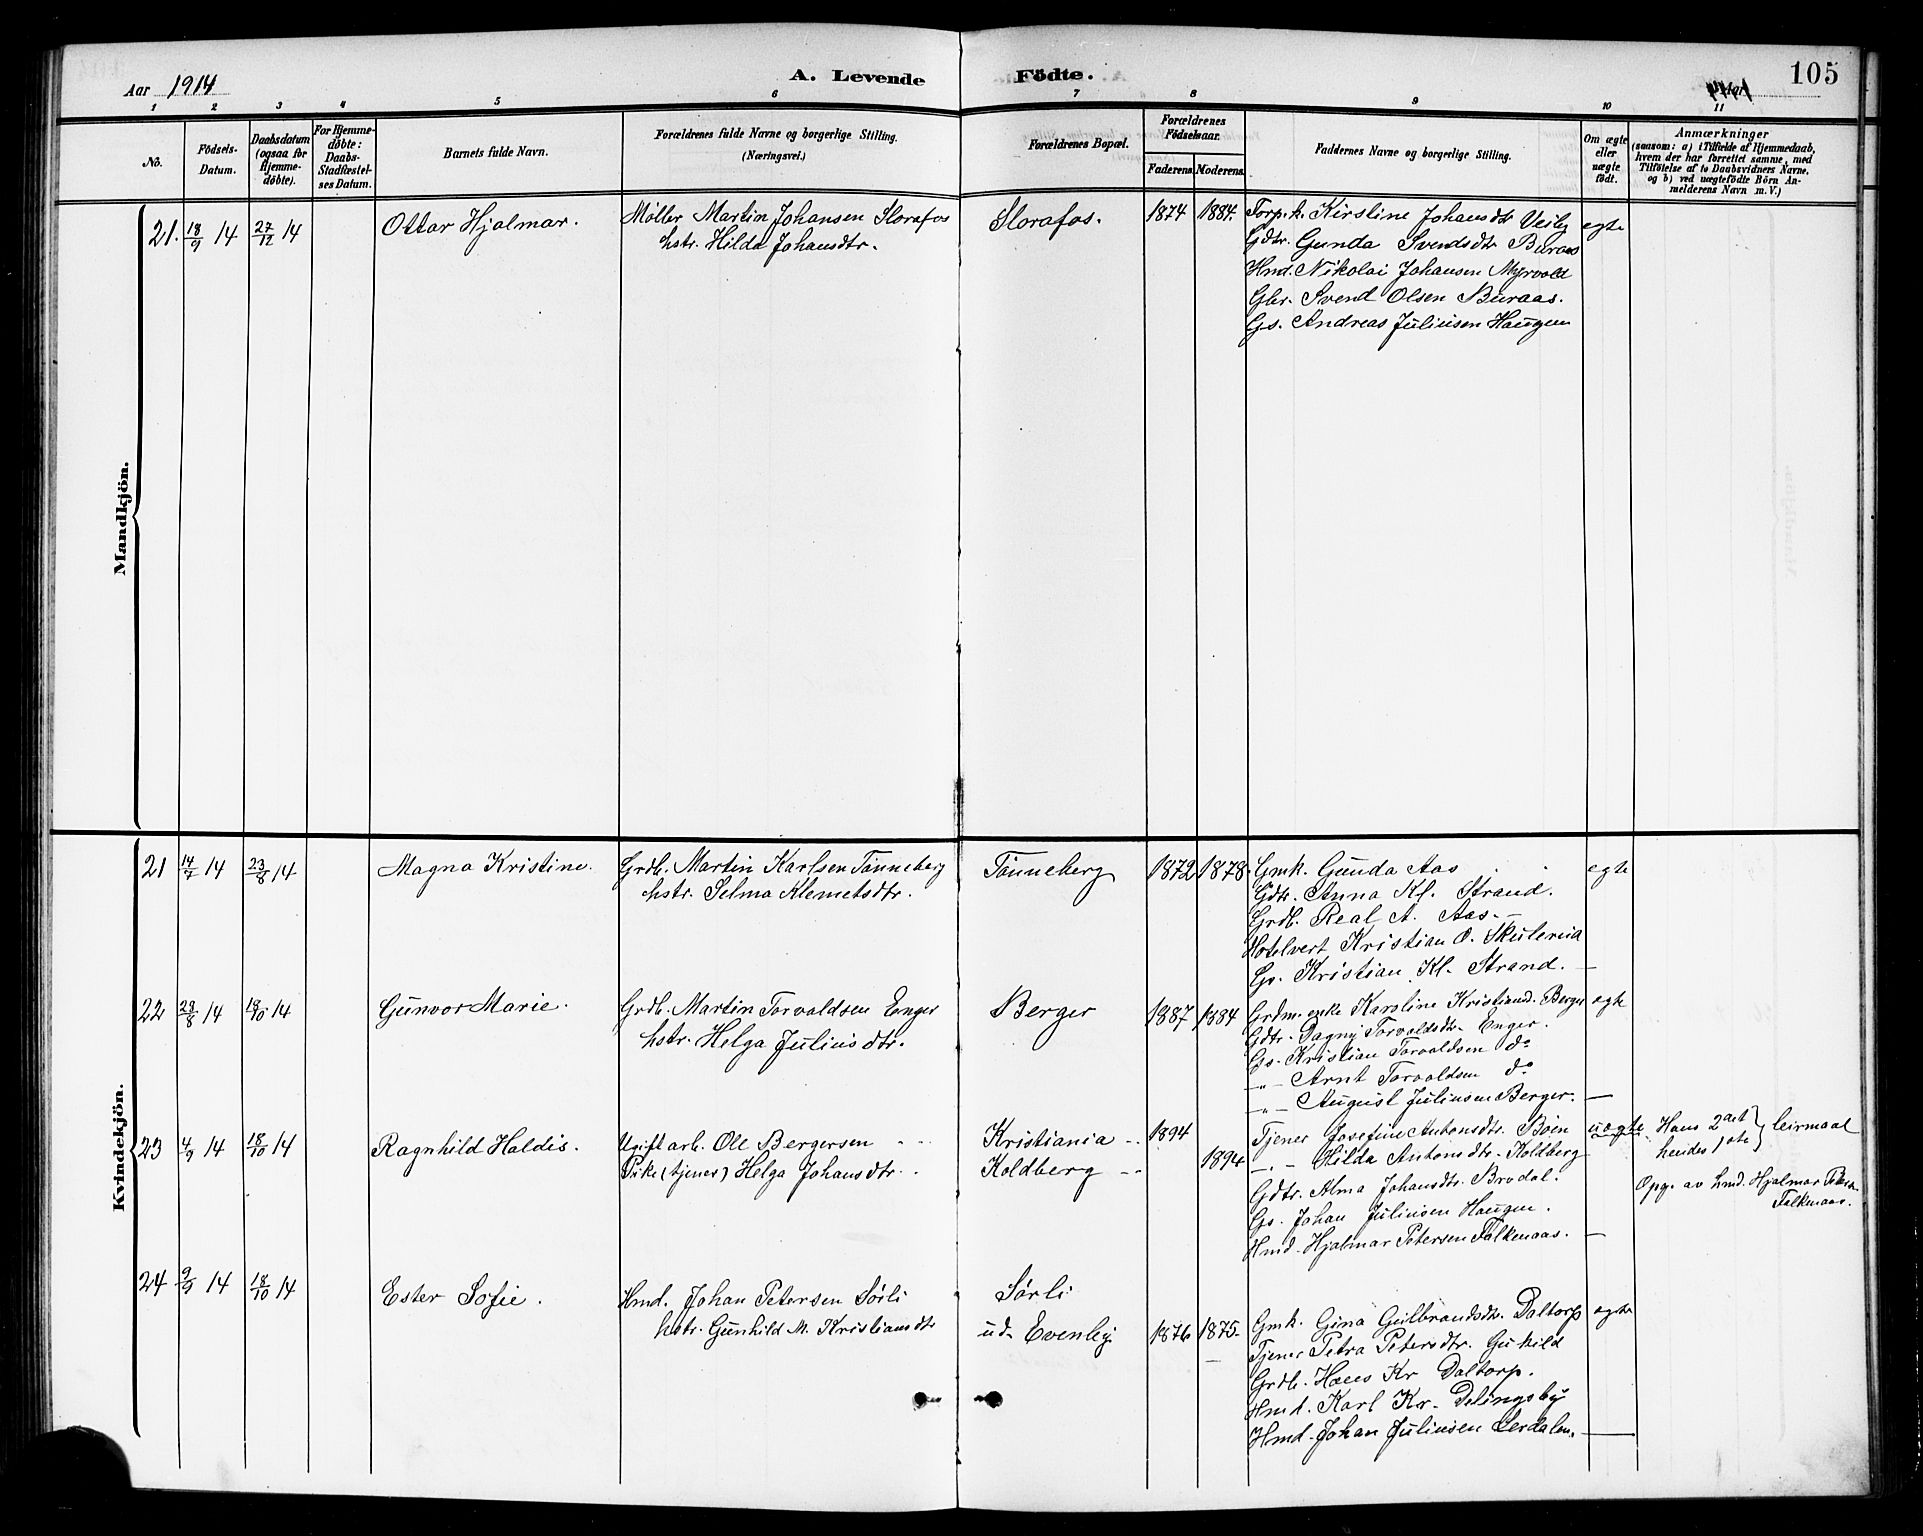 Aar 1914
A. Levende Födte.
105
1 2 3 4 5 6 7 8 9 10 11
No.
Födsels-Datum.
Daabsdatum (ogsaa for Hjemme-døbte).
For Hjemme-døbte: Daabs-Stadfæstel-ses Datum.
Barnets fulde Navn.
Forældrenes fulde Navne og borgerlige Stilling. (Næringsvei.)
Forældrenes Bopæl.
Forældrenes Födselsaar.
Faderens Moderens
Faddernes Navne og borgerlige Stilling.
Om ægte eller uægte födt.
Anmærkninger
(saasom: a) i Tilfælde af Hjemmedaab, hvem der har forrettet samme, med Tilføielse af to Daabsvidners Navne, og b) ved uægtefödte Börn An-melderens Navn m. V.)
Mandkjön.
21. 18/9 14 27/12 14 Ottar Hjalmar. Møller Martin Johansen Storafos Storafos. 1874 1884. Torp.k. Kirstine Johansdtr Veiby egte
hstr. Hilda Johansdtr. Gdtr. Gunda Svendsdtr Buraas
Hmd. Nikolai Johansen Myrvold
Gbr. Svend Olsen Buraas.
Gs. Andreas Juliusen Haugen
Kvindekjön.
21 14/7 14 23/8 14 Magna Kristine. Grdb. Martin Karlsen Tønneberg Tønneberg 1872 1878. Gmk. Gunda Aas egte
hstr. Selma Klemetsdtr. Gdtr. Anna Kl. Strand.
Grdb. Real A. Aas.
Hotelvert Kristian O. Skulerud
Gs. Kristian Kl. Strand. —
22 28/8 14 18/10 14 Gunvor Marie. Grdb. Martin Torvaldsen Enger Berger 1887 1884 Grdm. enke Karoline Kristiansd. Berger egte
hstr. Helga Juliusdtr. Gdtr. Dagny Torvaldsdtr. Enger.
Gs. Kristian Torvaldsen do
-"- Arnt Torvaldsen do
-"- August Juliusen Berger. —
23 4/9 14 18/10 14 Ragnhild Haldis. Ugift arb. Ole Bergersen Kristiania 1894 Tjener Josefine Antonsdtr. Böen uægte. Hans 2det } leirmaal
Pike (tjener) Helga Johansdtr. Koldberg 1894 -"- Hilda Antonsdtr. Koldberg hendes 1ste
Gdtr. Alma Johansdtr. Brodal. Opg. av hmd. Hjalmar Petersen
Gs. Johan Juliusen Haugen. Falkenaas.
Hmd. Hjalmar Petersen Falkenaas. —
24 9/9 14 18/10 14 Ester Sofie. Hmd. Johan Petersen Sørli Sørli
hstr. Gunhild M. Kristiansdtr. ud. Evenby. 1876 1875. Gmk. Gina Gulbrandsdtr. Daltorp egte
Tjener Petra Petersdtr.
Grdb. Hans Kr Daltorp.
Hmd. Karl Kr. Delingsby
Hmd. Johan Juliusen Lerdalen. —